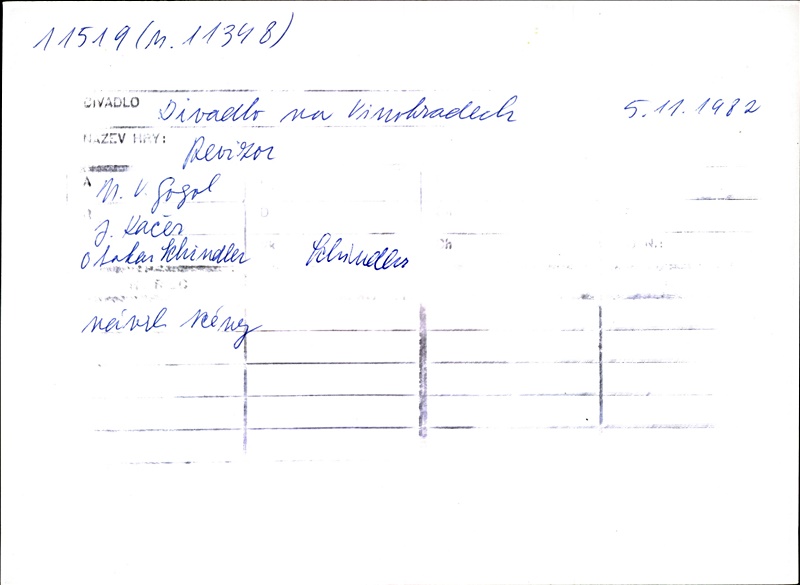 11519 (n. 11348)
DIVADLO Divadlo na Vinohradech 5.11.1982
NÁZEV HRY: Revizor
A N. V. Gogol
R J. Kačer
Otakar Schindler Schindler
návrh scény